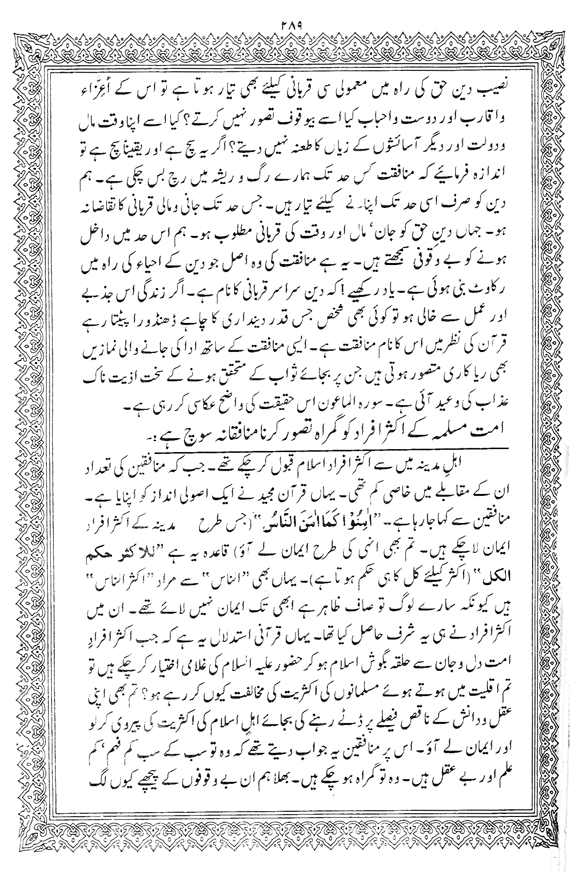 ۲۸۹
نصیب دین حق کی راہ میں معمولی سی قربانی کیلئے بھی تیار ہوتا ہے تو اس کے اَعِزّاء
و اقارب اور دوست و احباب کیا اسے بیوقوف تصور نہیں کرتے؟ کیا اسے اپنا وقت مال
و دولت اور دیگر آسائشوں کے زیاں کا طعنہ نہیں دیتے؟ اگر یہ سچ ہے اور یقیناً سچ ہے تو
اندازہ فرمائیے کہ منافقت کس حد تک ہمارے رگ و ریشہ میں رچ بس چکی ہے۔ ہم
دین کو صرف اسی حد تک اپنانے کیلئے تیار ہیں۔ جس حد تک جانی و مالی قربانی کا تقاضا نہ
ہو۔ جہاں دینِ حق کو جان، مال اور وقت کی قربانی مطلوب ہو۔ ہم اس حد میں داخل
ہونے کو بے وقوفی سمجھتے ہیں۔ یہ ہے منافقت کی وہ اصل جو دین کے احیاء کی راہ میں
رکاوٹ بنی ہوئی ہے۔ یاد رکھیے! کہ دین سراسر قربانی کا نام ہے۔ اگر زندگی اس جذبے
اور عمل سے خالی ہو تو کوئی بھی شخص جس قدر دینداری کا چاہے ڈھنڈورا پیٹتا رہے
قرآن کی نظر میں اس کا نام منافقت ہے۔ ایسی منافقت کے ساتھ ادا کی جانے والی نمازیں
بھی ریا کاری متصور ہوتی ہیں جن پر بجائے ثواب کے متحقق ہونے کے سخت اذیت ناک
عذاب کی وعید آئی ہے۔ سورہ الماعون اس حقیقت کی واضح عکاسی کر رہی ہے۔
امت مسلمہ کے اکثر افراد کو گمراہ تصور کرنا منافقانہ سوچ ہے :۔
اہلِ مدینہ میں سے اکثر افراد اسلام قبول کر چکے تھے۔ جب کہ منافقین کی تعداد
ان کے مقابلے میں خاصی کم تھی۔ یہاں قرآن مجید نے ایک اصولی انداز کو اپنایا ہے۔
منافقین سے کہا جا رہا ہے۔ ”اٰمِنُوْا كَمَاۤ اٰمَنَ النَّاسُ“ (جس طرح مدینہ کے اکثر افراد
ایمان لا چکے ہیں۔ تم بھی انہی کی طرح ایمان لے آؤ) قاعدہ یہ ہے ”للاکثر حکم
الکل“ (اکثر کیلئے کل کا ہی حکم ہوتا ہے)۔ یہاں بھی ”الناس“ سے مراد ”اکثر الناس“
ہیں کیونکہ سارے لوگ تو صاف ظاہر ہے ابھی تک ایمان نہیں لائے تھے۔ ان میں
اکثر افراد نے ہی یہ شرف حاصل کیا تھا۔ یہاں قرآنی استدلال یہ ہے کہ جب اکثر افرادِ
امت دل و جان سے حلقہ بگوش اسلام ہو کر حضور علیہ السلام کی غلامی اختیار کر چکے ہیں تو
تم اقلیت میں ہوتے ہوئے مسلمانوں کی اکثریت کی مخالفت کیوں کر رہے ہو؟ تم بھی اپنی
عقل و دانش کے ناقص فیصلے پر ڈٹے رہنے کی بجائے اہلِ اسلام کی اکثریت کی پیروی کر لو
اور ایمان لے آؤ۔ اس پر منافقین یہ جواب دیتے تھے کہ وہ تو سب کے سب کم فہم، کم
علم اور بے عقل ہیں۔ وہ تو گمراہ ہو چکے ہیں۔ بھلا ہم ان بے وقوفوں کے پیچھے کیوں لگ